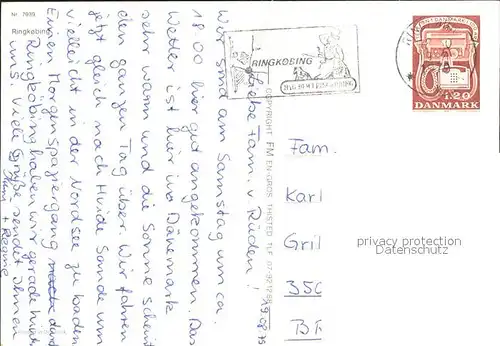 Nr. 7699
Ringkøbing
19.08.79
Liebe Fam. v. Rüden!
Wir sind am Samstag um ca.
18.00 hier gut angekommen. Das
Wetter ist hier in Dänemark
sehr warm und die Sonne scheint
den ganzen Tag über. Wir fahren
jetzt gleich nach Hvide Sande um
vielleicht in der Nordsee zu baden.
Einen Morgenspaziergang durch
Ringköbing haben wir gerade hinter
uns. Viele Grüße sendet Ihnen
+ Regine
COPYRIGHT FMEN-GROS THISTED TLF
RINGKØBING
DANMARK
120
Fam.
Karl
Gril
privacy protection
Datenschutz